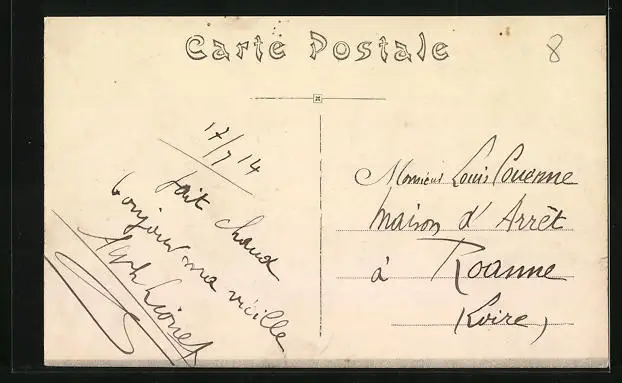 Carte Postale
8
17/7 14
fait chaud
bonjour ma vieille
Lionet
Monsieur Louis
Maison d'Arrêt
à Roanne
(Loire)